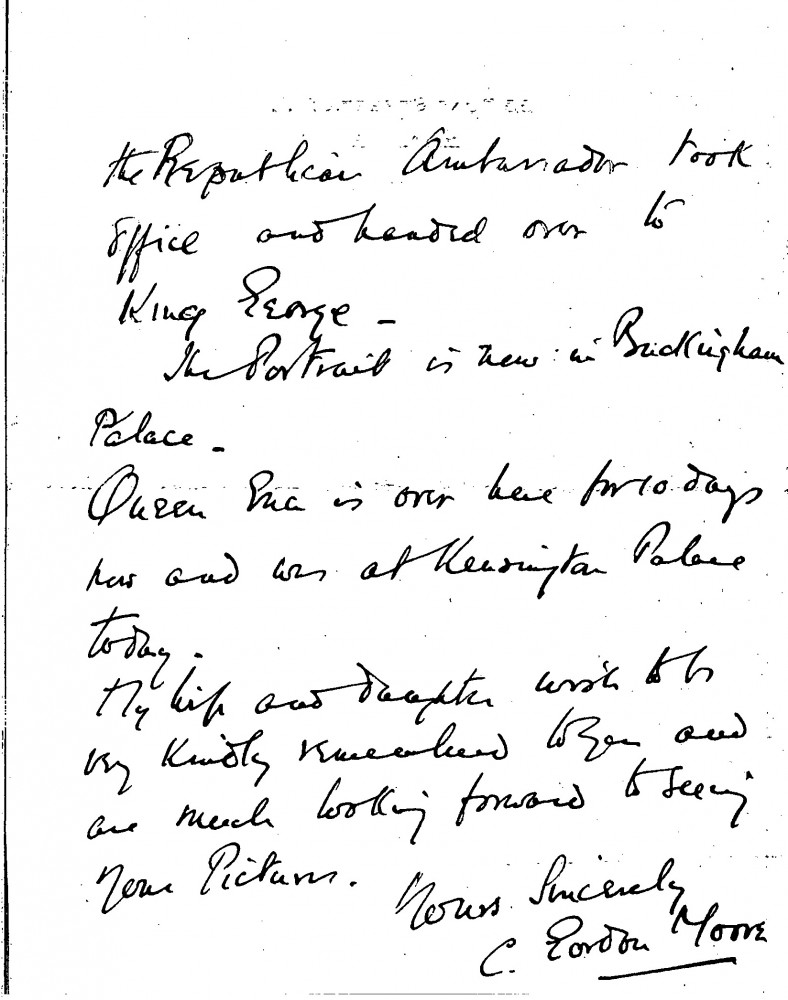 the Republican Ambassador took
office and handed over to
King George -
The Portrait is now in Buckingham
Palace -
Queen Ena is over here for 10 days
now and was at Kensington Palace
today.
My wife and daughter wish to be
very kindly remembered to you and
are much looking forward to seeing
your Pictures.
Yours Sincerely
C. Gordon Moore